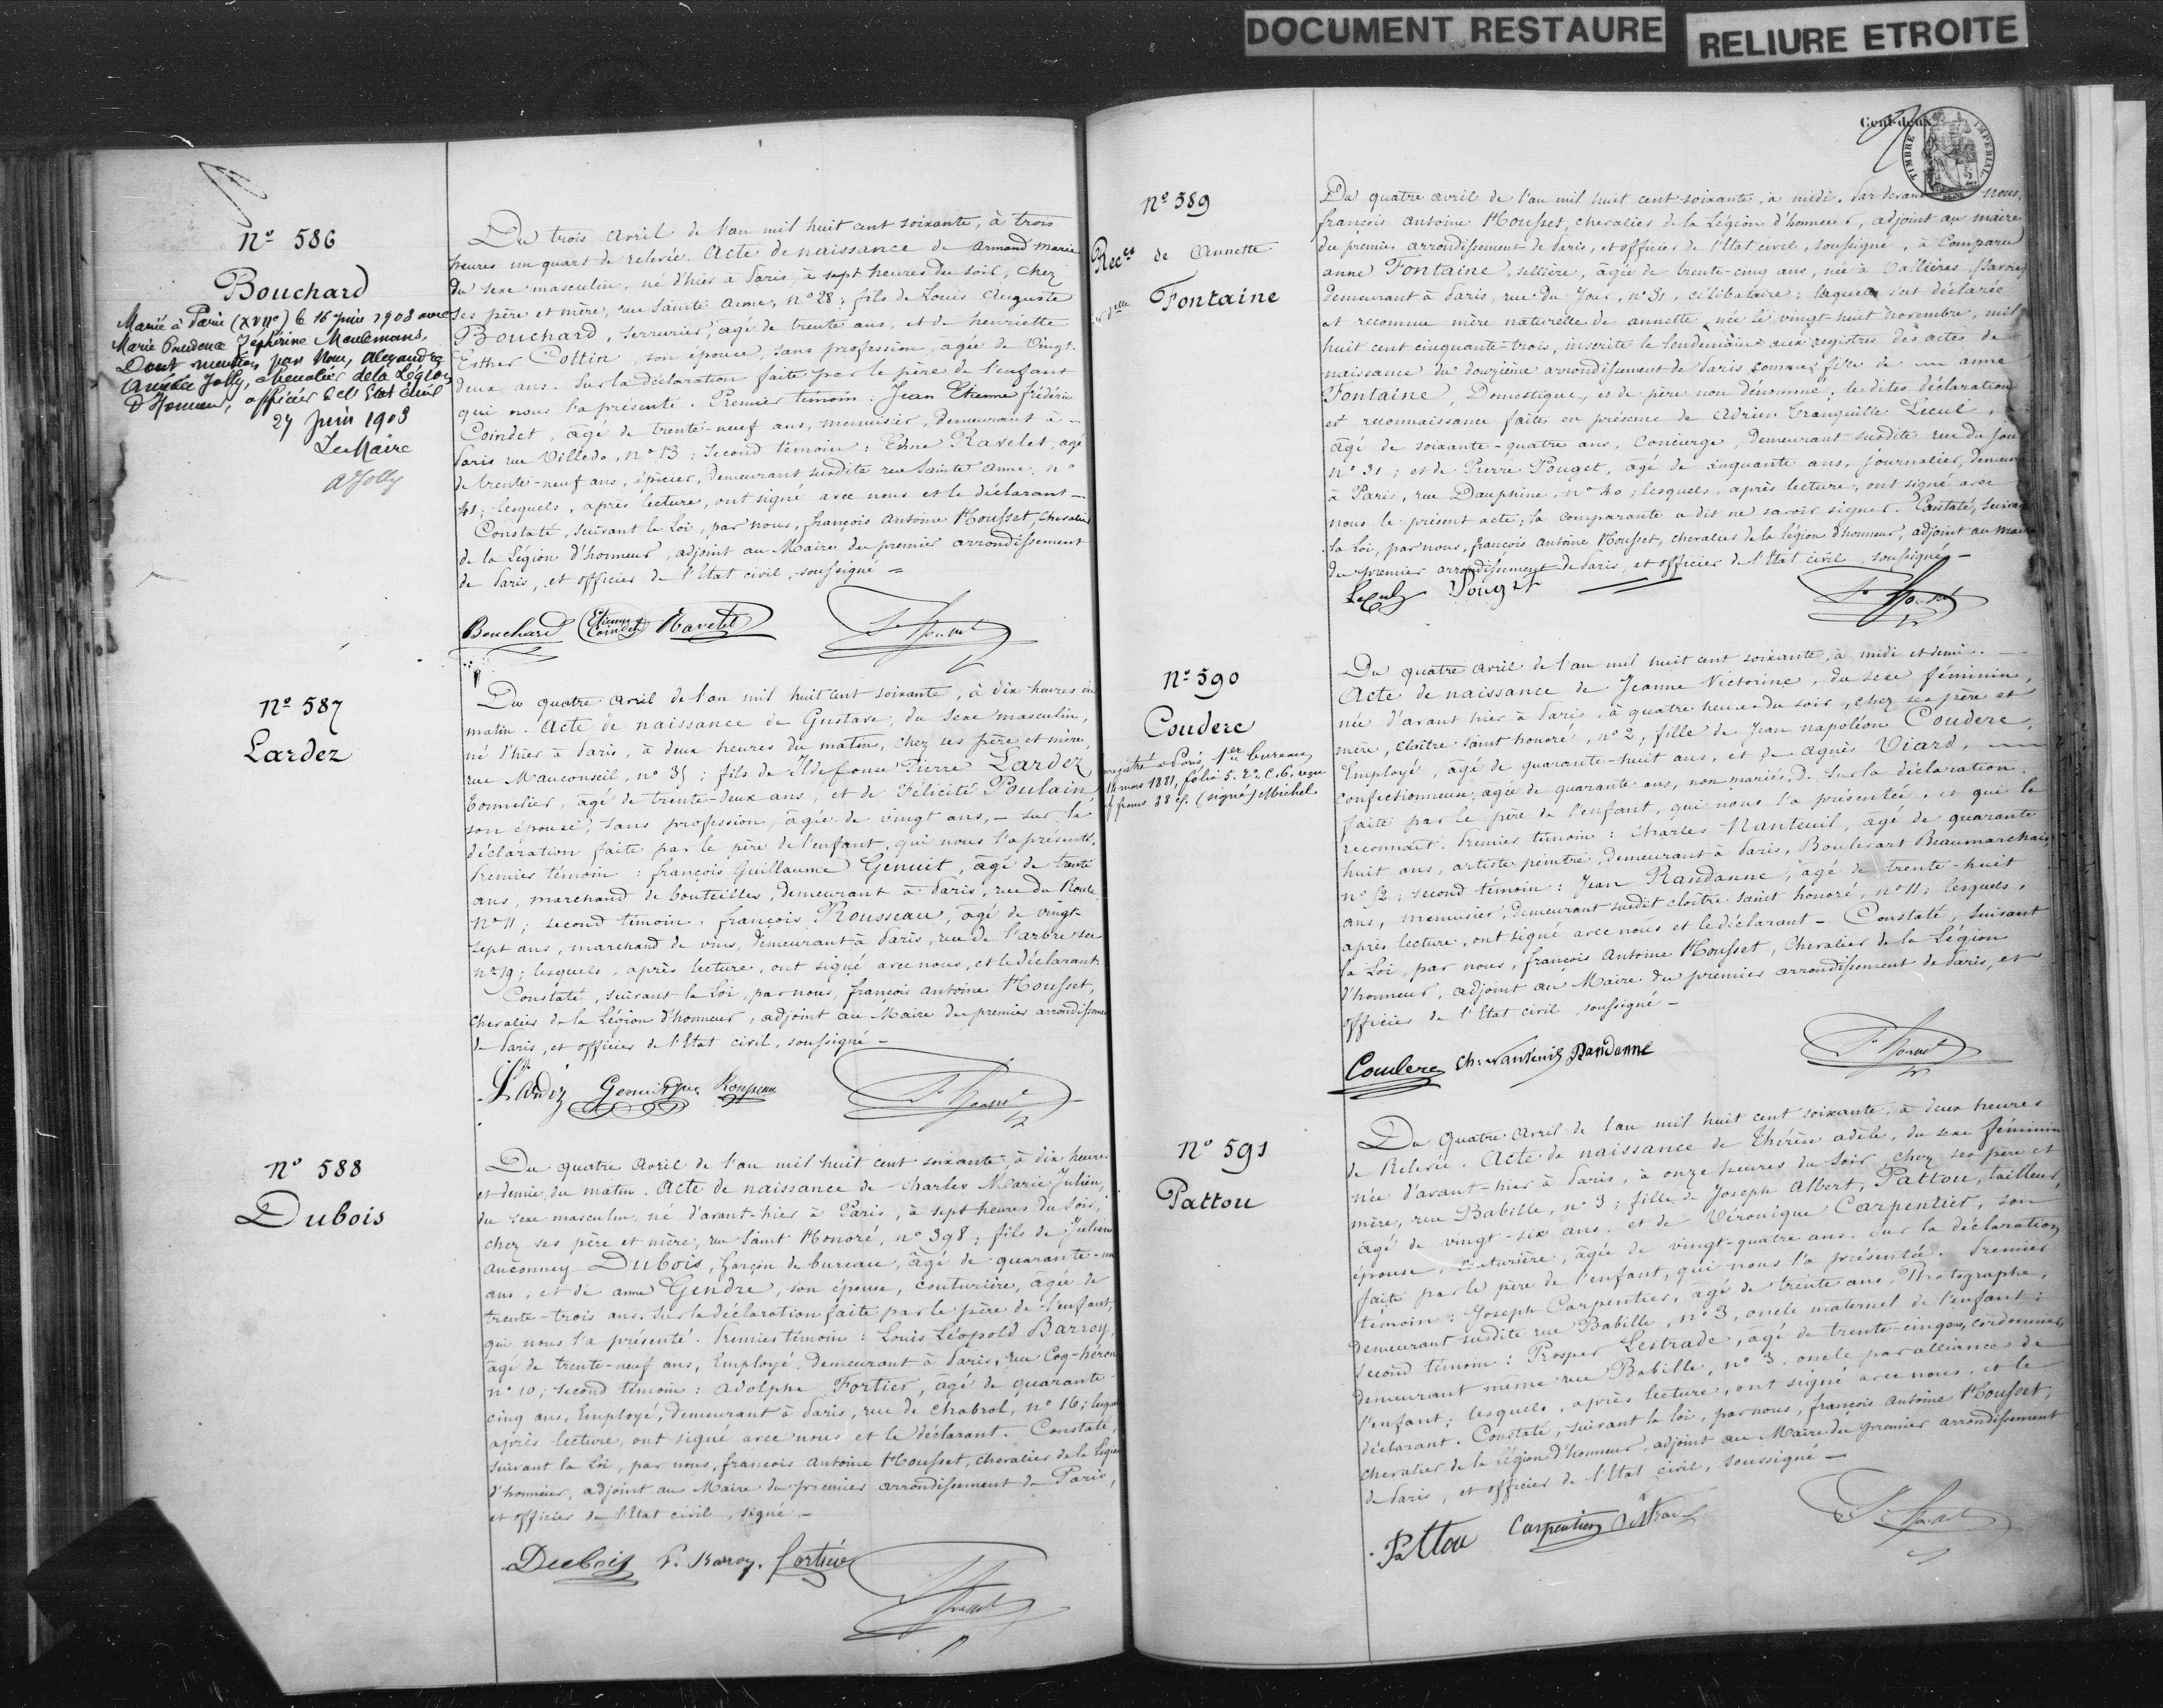 DOCUMENT RESTAURE
RELIURE ETROITE
Nº 586
Bouchard
Marié à Paris (XVIIe) le 16 juin 1903 avec
Marie Prudence Zéphirine Meulemans,
Dont mention par Nous, Alexandre
Amédée Jolly, chevalier de la Légion
d'Honneur, officier de l'Etat civil
27 juin 1903
Le Maire
A Jolly
Du trois Avril de l'an mil huit cent soixante, à trois
heures un quart de relevée. Acte de naissance de Armand marie
du sexe masculin, né d'hier à Paris, à sept heures du soir, chez
ses père et mère, rue Sainte Anne, nº 28; fils de Louis Auguste
Bouchard, serrurier, âgé de trente ans, et de henriette
Esther Cottin, son épouse, sans profession, agée de Vingt-
deux ans. Sur la déclaration faite par le père de l'enfant
qui nous l'a présenté. Premier témoin: Jean Etienne frédéric
Coindet, âgé de trente-neuf ans, menuisier, demeurant à
Paris rue Villedo, nº 13; second témoin: Edme Ravelet, agé
de trente-neuf ans, épicier, demeurant susdite rue Sainte Anne, nº
41; lesquels, après lecture, ont signé avec nous et le déclarant —
Constaté, suivant la Loi, par nous, françois Antoine Housset, Chevalier
de la Légion d'honneur, adjoint au Maire du premier arrondissement
de Paris, et officier de l'Etat civil, soussigné =
Bouchard Etienne Coindet Ravelet
Nº 587
Lardez
Du quatre Avril de l'an mil huit cent soixante, à dix heures du
matin. Acte de naissance de Gustave, du sexe masculin,
né d'hier à Paris, à deux heures du matin, chez ses père et mère,
rue Mauconseil, nº 35; fils de Ildefonse Pierre Lardez
tonnelier, âgé de trente-deux ans, et de Félicité Poulain
son épouse, sans profession, âgée de vingt ans, — sur la
déclaration faite par le père de l'enfant, qui nous l'a présenté.
Premier témoin: françois Guillaume Genuit, âgé de trente
ans, marchand de bouteilles, demeurant à Paris, rue du Roule,
nº 11; second témoin: françois Rousseau, âgé de vingt-
sept ans, marchand de vins, demeurant à Paris, rue de l'arbre sec
nº 19; lesquels, après lecture, ont signé avec nous, et le déclarant.
Constaté, suivant la Loi, par nous, françois Antoine Housset,
Chevalier de la Légion d'honneur, adjoint au Maire du premier arrondissement
de Paris, et officier de l'Etat civil, soussigné —
Lardez Genuit Rousseau
Nº 588
Dubois
Du quatre Avril de l'an mil huit cent soixante, à dix heures
et demie du matin. Acte de naissance de Charles Marie Julien,
du sexe masculin, né d'avant-hier à Paris, à sept heures du soir,
chez ses père et mère, rue Saint Honoré, nº 398; fils de Julien
anconney Dubois, garçon de bureau, âgé de quarante-un
ans, et de anne Gendre, son épouse, couturière, âgée de
trente-trois ans. Sur la déclaration faite par le père de l'enfant,
qui nous l'a présenté. Premier témoin: Louis Léopold Barroy,
âgé de trente-neuf ans, Employé, demeurant à Paris, rue Coq-héron
nº 10; second témoin: Adolphe Fortier, âgé de quarante-
cinq ans, Employé, demeurant à Paris, rue de Chabrol, nº 16; lesquels
après lecture, ont signé avec nous et le déclarant. Constaté,
suivant la Loi, par nous, françois Antoine Housset, chevalier de la Légion
d'honneur, adjoint au Maire du premier arrondissement de Paris,
et officier de l'Etat civil, signé —
Dubois L. Barroy. Fortier
Cent-deux
TIMBRE IMPERIAL
Nº 589
Recces de Annette
Fontaine
Du quatre avril de l'an mil huit cent soixante, à midi. Par devant nous,
françois Antoine Housset, chevalier de la Légion d'honneur, adjoint au maire
du premier arrondissement de Paris, et officier de l'Etat civil, soussigné, à Comparu
anne Fontaine, sellière, âgée de trente-cinq ans, née à Vallières (Savoie)
demeurant à Paris, rue du Jour, nº 31, célibataire; laquelle s'est déclarée
et reconnue mère naturelle de annette née le vingt-huit novembre, mil
huit cent cinquante-trois, inscrite le lendemain aux registres des actes de
naissance du douzième arrondissement de Paris comme fille de anne
Fontaine, Domestique, et de père non dénommé; lesdites déclaration
et reconnaissance faites en présence de Adrien Tranquille Lecul,
âgé de soixante-quatre ans, concierge, demeurant susdite rue du Jour
nº 31; et de Pierre Pouget, âgé de cinquante ans, journalier, demeurant
à Paris, rue Dauphine, nº 40; lesquels, après lecture, ont signé avec
nous le présent acte; la comparante a dit ne savoir signer. Constaté, suivant
la Loi, par nous, françois Antoine Housset, chevalier de la Légion d'honneur, adjoint au maire
du premier arrondissement de Paris, et officier de l'Etat civil, soussigné —
Lecul Pouget
Nº 590
Couderc
enregistré à Paris, 1er bureau,
14 mars 1881, folio 5. Rº. C. 6, reçu
francs 38 c. (signé) Michel
Du quatre avril de l'an mil huit cent soixante, à midi et demi. —
Acte de naissance de Jeanne Victorine, du sexe féminin,
née d'avant hier à Paris, à quatre heures du soir, chez ses père et
mère, cloître saint honoré, nº 2; fille de Jean napoléon Couderc,
Employé, âgé de quarante-huit ans, et de agnès Viard,
confectionneuse, agée de quarante ans, non mariés. Sur la déclaration
faite par le père de l'enfant, qui nous l'a présentée, et qui le
reconnait. Premier témoin: Charles Nanteuil, âgé de quarante
huit ans, artiste peintre, demeurant à Paris, Boulevart Beaumarchais,
nº 52; second témoin: Jean Randanne, âgé de trente-huit
ans, menuisier, demeurant susdit cloître saint honoré, nº 11; lesquels,
après lecture, ont signé avec nous et le déclarant — Constaté, suivant
la Loi, par nous, françois Antoine Housset, Chevalier de la Légion
d'honneur, adjoint au Maire du premier arrondissement de Paris, et
officier de l'Etat civil, soussigné —
Couderc Ch. Nanteuil Randanne
Nº 591
Pattou
Du quatre Avril de l'an mil huit cent soixante, à deux heures
de Relevée. Acte de naissance de Thérèse adèle, du sexe féminin
née d'avant-hier à Paris, à onze heures du soir, chez ses père et
mère, rue Babille, nº 3; fille de Joseph Albert, Pattou, tailleur,
âgé de vingt-six ans, et de Véronique Carpentier, son
épouse, couturière, âgée de vingt-quatre ans. Sur la déclaration
faite par le père de l'enfant, qui nous l'a présentée. Premier
témoin: Joseph Carpentier, agé de trente ans, Photographe,
demeurant susdite rue Babille, nº 3, oncle maternel de l'enfant;
second témoin: Prosper Lestrade, âgé de trente-cinq ans, cordonnier,
demeurant même rue Babille, nº 3, oncle par alliance de
l'enfant; lesquels, après lecture, ont signé avec nous, et le
déclarant. Constaté, suivant la loi, par nous, françois Antoine Housset,
chevalier de la Légion d'honneur, adjoint au Maire du premier arrondissement
de Paris, et officier de l'Etat civil, soussigné —
Pattou Carpentier Lestrade